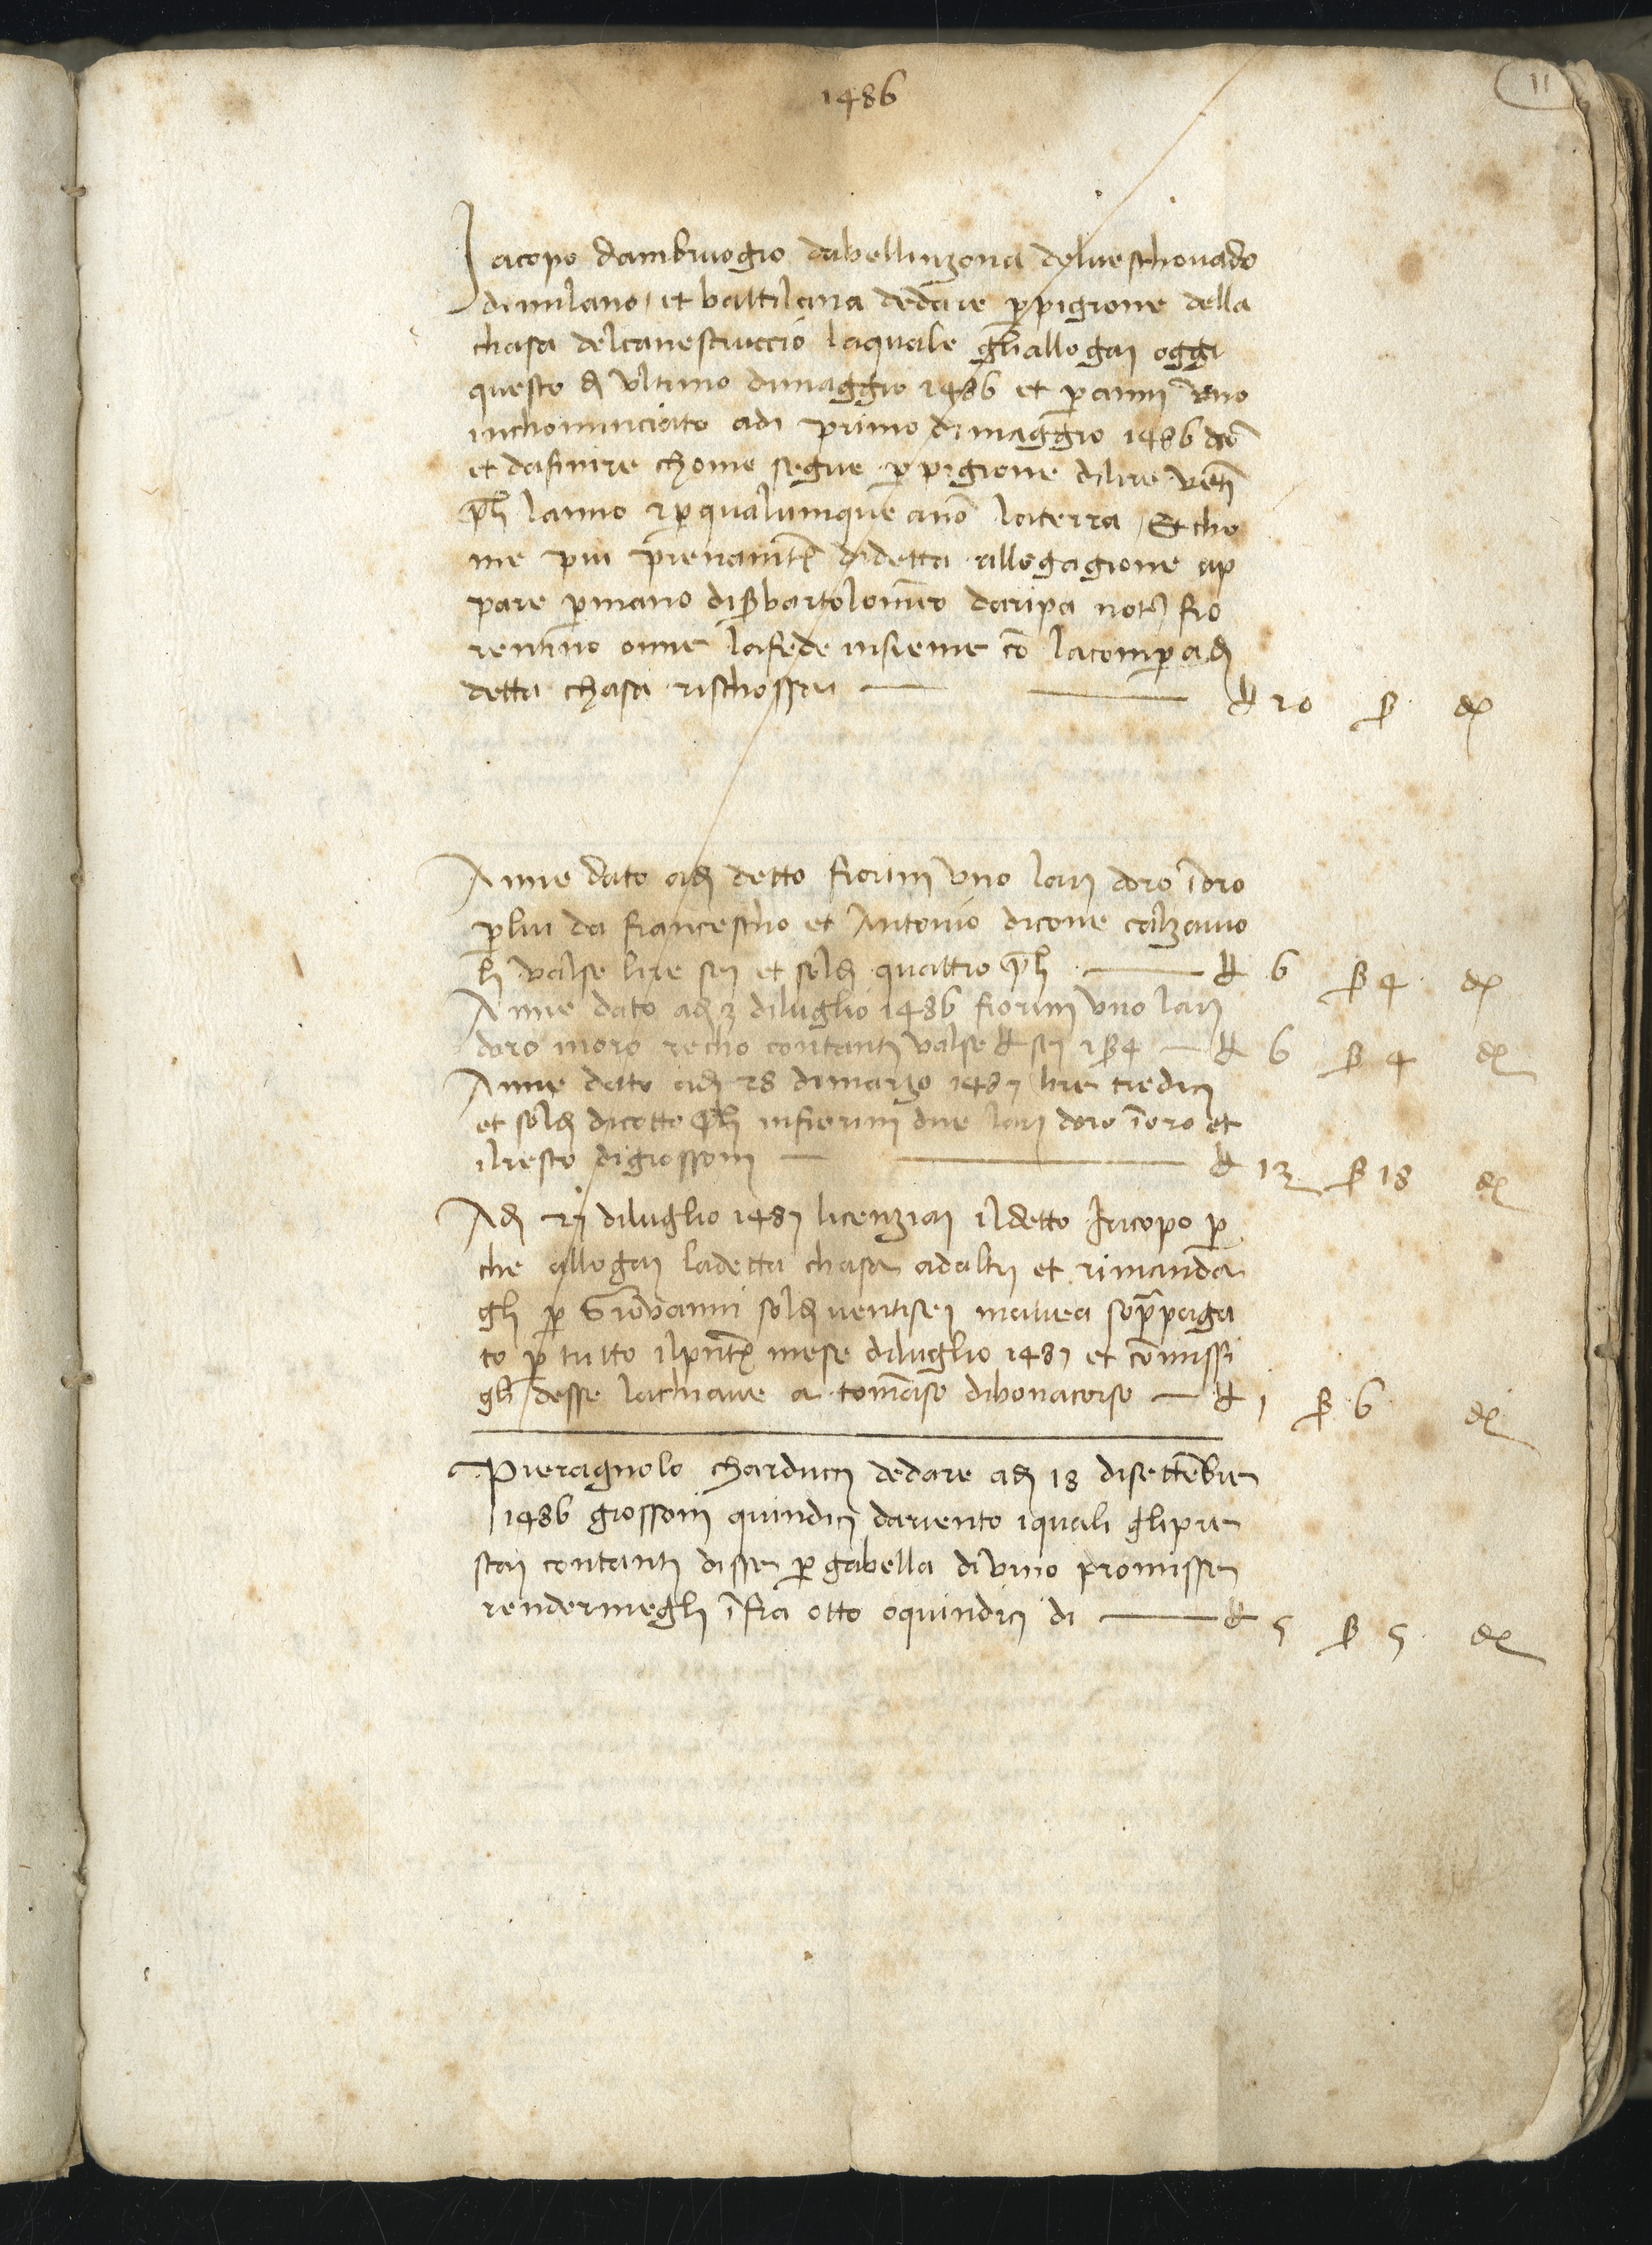 11
1486
Jacopo dambruogio dabellinzona delueschouado
dimilano et battilana dedare p̱ pigione della
chasa delcanestruccio laquale gliallogai oggi
questo dì vltimo dimaggio 1486 et p̱ anni vno
inchominciato adi primo dimaggio 1486 dto
et dafinire chome segue p̱ pigione dilire venti
lanno 1 p̱ qualumque ano laterra Et cho
me piu pienamte didetta allogagione ap
pare p̱ mano di ß bartolomeo daripa noto fio
rentino onne lafede insieme cō lacompa di
detta chasa rischossa — — £ 20 ß d
Anne dato adi detto fiorini vno lari doro ī oro
p̱ lui da francescho et Antonio dicone calzaiuo
li valse lire sei et soldi quattro — £ 6 ß 4 d
Anne dato adi 3 diluglio 1486 fiorini vno lari
doro inoro recho contanti valse £ sei 1 ß 4 — £ 6 ß 4 d
Anne dato adi 28 dimarzo 1487 lire tredici
et soldi diciotto in fiorini due lari doro ī oro et
ilresto digrossoni — — £ 13 ß 18 d
Adi 27 diluglio 1487 licenziai ildetto Jacopo p̱
che allogai ladetta chasa adaltri et rimanda
gli p̱ Giovanni soldi ventisei mauea soprapaga
to p̱ tutto ilpnte mese diluglio 1487 et cōmissi
gli desse lachiaue a tomaso dibonacorso — £ 1 ß 6 d
Pieragnolo charducci dedare adi 18 disettēbre
1486 grossoni quindici dariento iquali glipre
stai contanti disse p̱ gabella diuino promisse
rendermegli īfra otto oquindici di — £ 5 ß 5 d